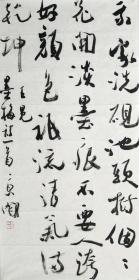 我家洗硯池頭樹個々
花開淡墨痕不要人誇
好顏色祇流清氣滿
乾坤
王冕
墨梅詩一首